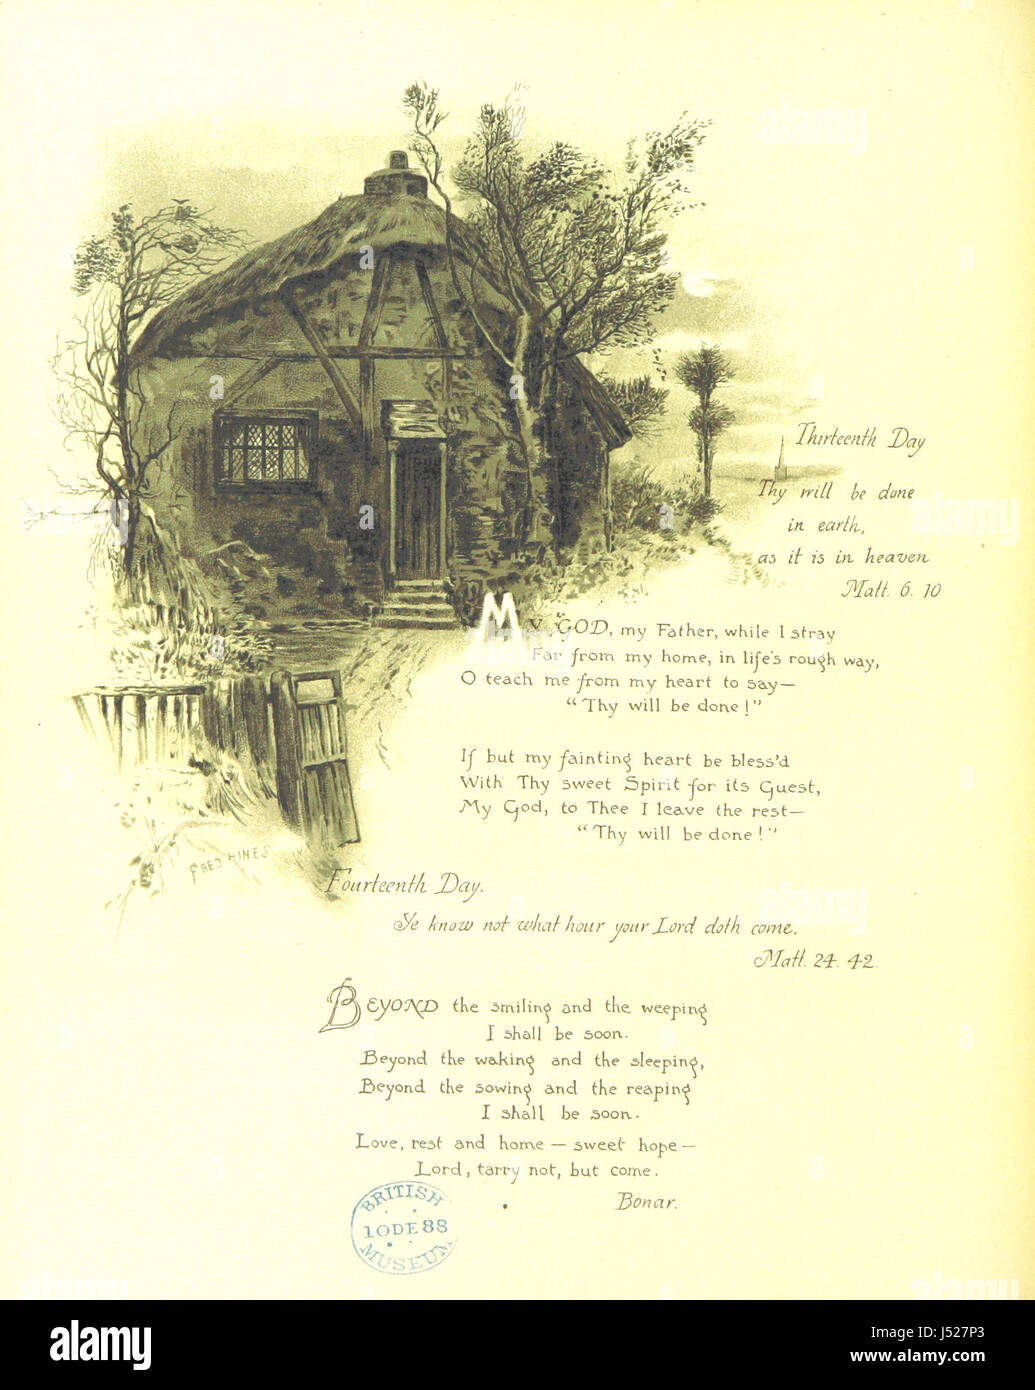 Thirteenth Day
Thy will be done
in earth,
as it is in heaven
Matt. 6. 10
MY GOD, my Father, while I stray
Far from my home, in life's rough way,
O teach me from my heart to say—
"Thy will be done!"
If but my fainting heart be bless'd
With Thy sweet Spirit for its Guest,
My God, to Thee I leave the rest—
"Thy will be done!"
FRED HINES
Fourteenth Day.
Ye know not what hour your Lord doth come.
Matt. 24. 42.
BEYOND the smiling and the weeping
I shall be soon.
Beyond the waking and the sleeping,
Beyond the sowing and the reaping
I shall be soon.
Love, rest and home — sweet hope —
Lord, tarry not, but come.
Bonar.
BRITISH
10DE88
MUSEUM
alamy
Image ID: J527P3
www.alamy.com